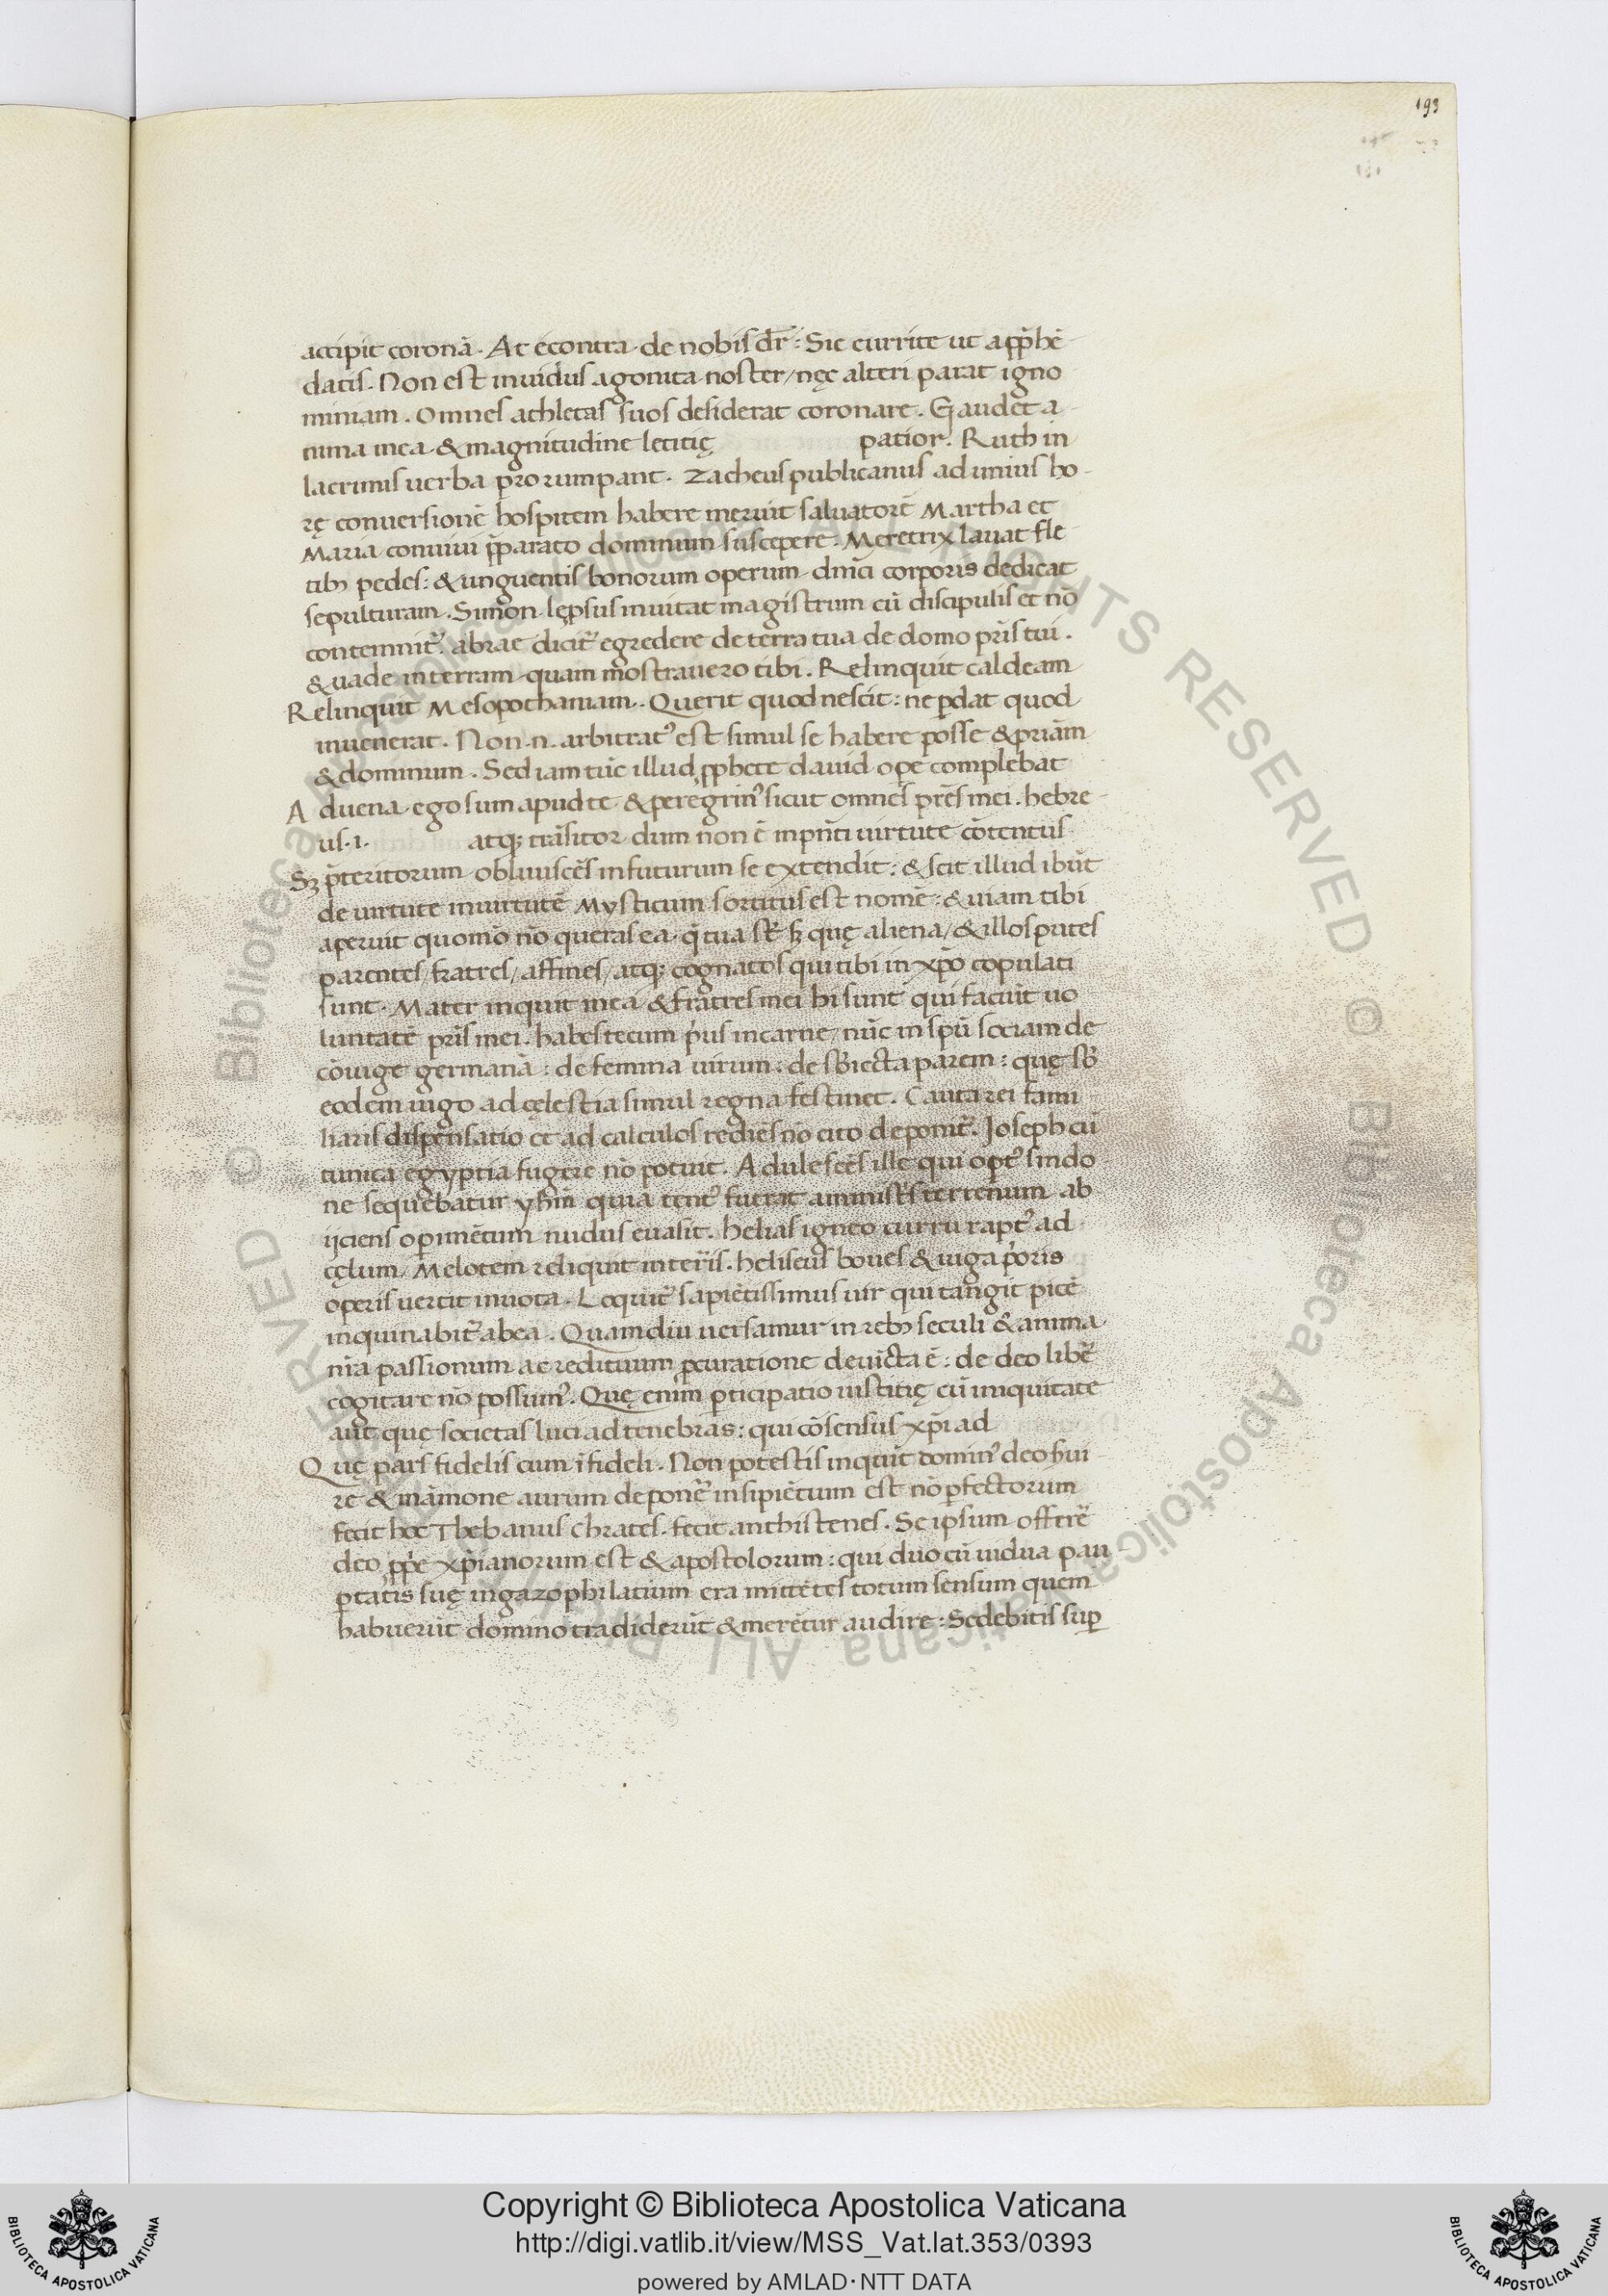 193
accipit coronā. At econtra de nobis dr̄: Sic currite ut app̄hē
datis. Non est inuidus agonita noster/ nęc alteri parat igno
miniam. Omnes athletas suos desiderat coronare. Gaudet a
nima mea & magnitudine letitię patior. Ruth in
lacrimis uerba prorumpant. Zacheus publicanus ad unius ho
rę conuersionē hospitem habere meruit saluatorē Martha et
Maria conuiui p̄parato dominum suscepere. Meretrix lauat fle
tibꝫ pedes: & unguentis bonorum operum dnīci corporis dedicat
sepulturam. Simon lępsus inuitat magistrum cū discipulis et nō
contemnit᷑. abrae dicit᷑ egredere de terra tua de domo pr̄is tui.
& uade in terram quam mostrauero tibi. Relinquit caldeam
Relinquit Mesopothaniam. Querit quod nescit: ne ꝑdat quod
inuenerat. Non .n. arbitratꝰ est simul se habere posse & pr̄iam
& dominum. Sed iam tūc illud ꝓphete dauid ope complebat
Aduena ego sum apud te & peregrinꝰ sicut omnes pr̄es mei. hebre
us .i. atqꝫ trāsitor dum non ē in pn̄ti uirtute cōtentus
Sꝫ p̄teritorum obliuiscēs in futurum se extendit: & scit illud ibūt
de uirtute in uirtutē Mysticum sortitus est nomē: & uiam tibi
aperuit quomō nō queras ea q̄ tua st̄ sꝫ quę aliena/ & illos putes
parentes/ fratres/ affines/ atqꝫ cognatos qui tibi in xp̄o copulati
sunt. Mater inquit mea & fratres mei hi sunt qui faciūt uo
luntatē pr̄is mei. habes tecum prius in carne/ nūc in spū sociam de
cōiuge germanā: de femina uirum: de sb̄iecta parem: quę sb̄
eodem iugo ad cęlestia simul regna festinet. Cauta rei fami
liaris dispensatio et ad calculos rediēs nō cito deponit᷑. Joseph cū
tunica egyptia fugere nō potuit. Adulescēs ille qui opt̄ꝰ sindo
ne sequebatur yh̄m quia tent̄ꝰ fuerat a ministris terrenum ab
ijciens opimētum nudus euasit. helias igneo curru raptꝰ ad
cęlum/ Melotem reliquit in terris. heliseus boues & iuga prioris
operis uertit in uota. Loquit᷑ sapiētissimus uir qui tangit picē
inquinabit᷑ ab ea. Quamdiu uersamur in rebꝫ seculi & anima
nr̄a passionum ac redituum ꝓcuratione deuīcta ē: de deo liberē
cogitare nō possumꝰ. Quę enim ꝑticipatio iustitię cū iniquitate
aut quę societas luci ad tenebras: qui cōsensus xp̄i ad
Quę pars fidelis cum īfideli. Non potestis inquit dominꝰ deo s̄ui
re & māmone aurum deponere insipiētium est nō ꝑfectorum
fecit hoc Thebanus chrates. fecit anthistenes. Se ipsum offerre
deo ꝓp̄e xp̄ianorum est & apostolorum: qui duo cū uidua pau
ꝑtatis suę in gazophilatium era mittētes totum sensum quem
habuerūt domino tradiderūt & merētur audire: Sedebitis suꝑ
Copyright © Biblioteca Apostolica Vaticana
http://digi.vatlib.it/view/MSS_Vat.lat.353/0393
powered by AMLAD·NTT DATA
BIBLIOTECA APOSTOLICA VATICANA
BIBLIOTECA APOSTOLICA VATICANA
© Biblioteca Apostolica Vaticana ALL RIGHTS RESERVED © Biblioteca Apostolica Vaticana ALL RIGHTS RESERVED